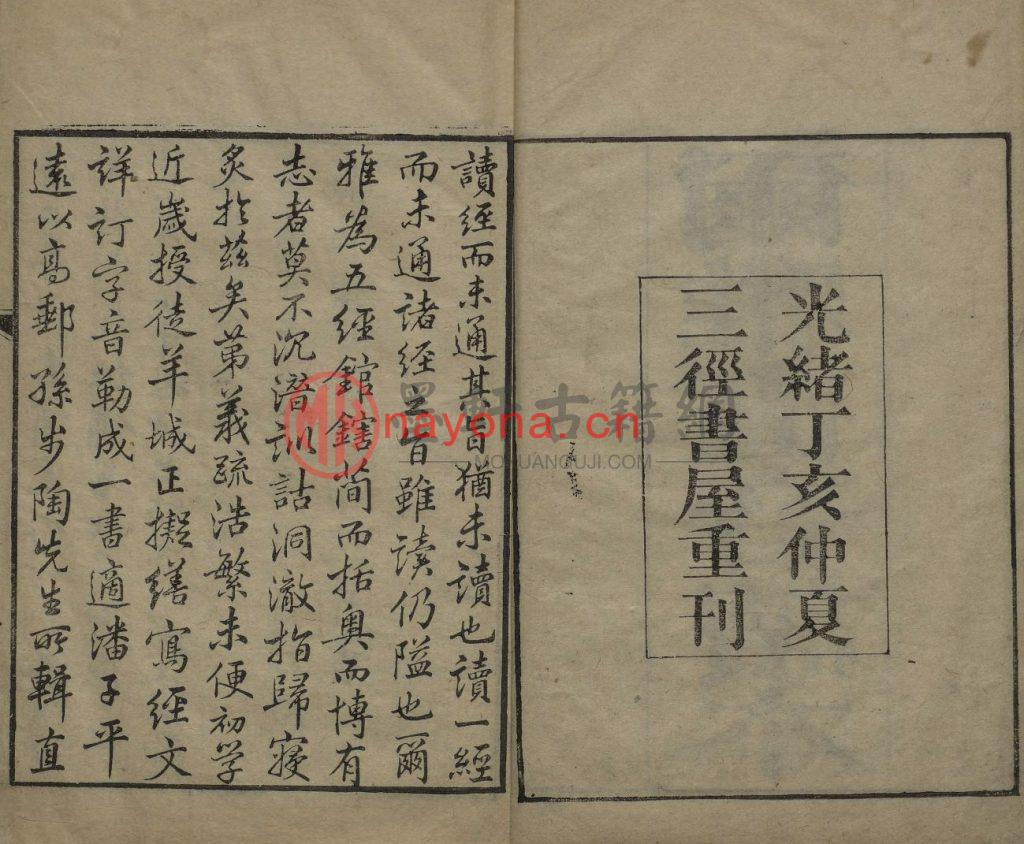 光緒丁亥仲夏
三徑書屋重刊
讀經而未通其旨猶未讀也讀一經
而未通諸經之旨雖读仍隘也爾
雅為五經錧鎋簡而括奥而博有
志者莫不沉潛訓詁洞澈指歸寢
炙於茲矣第義疏浩繁未便初学
近嵗授徒羊城正擬繕寫經文
詳訂字音勒成一書適潘子平
遠以高郵孫步陶先生所輯直
墨軒古籍網
nayona.cn
MOXUANGUJI.COM